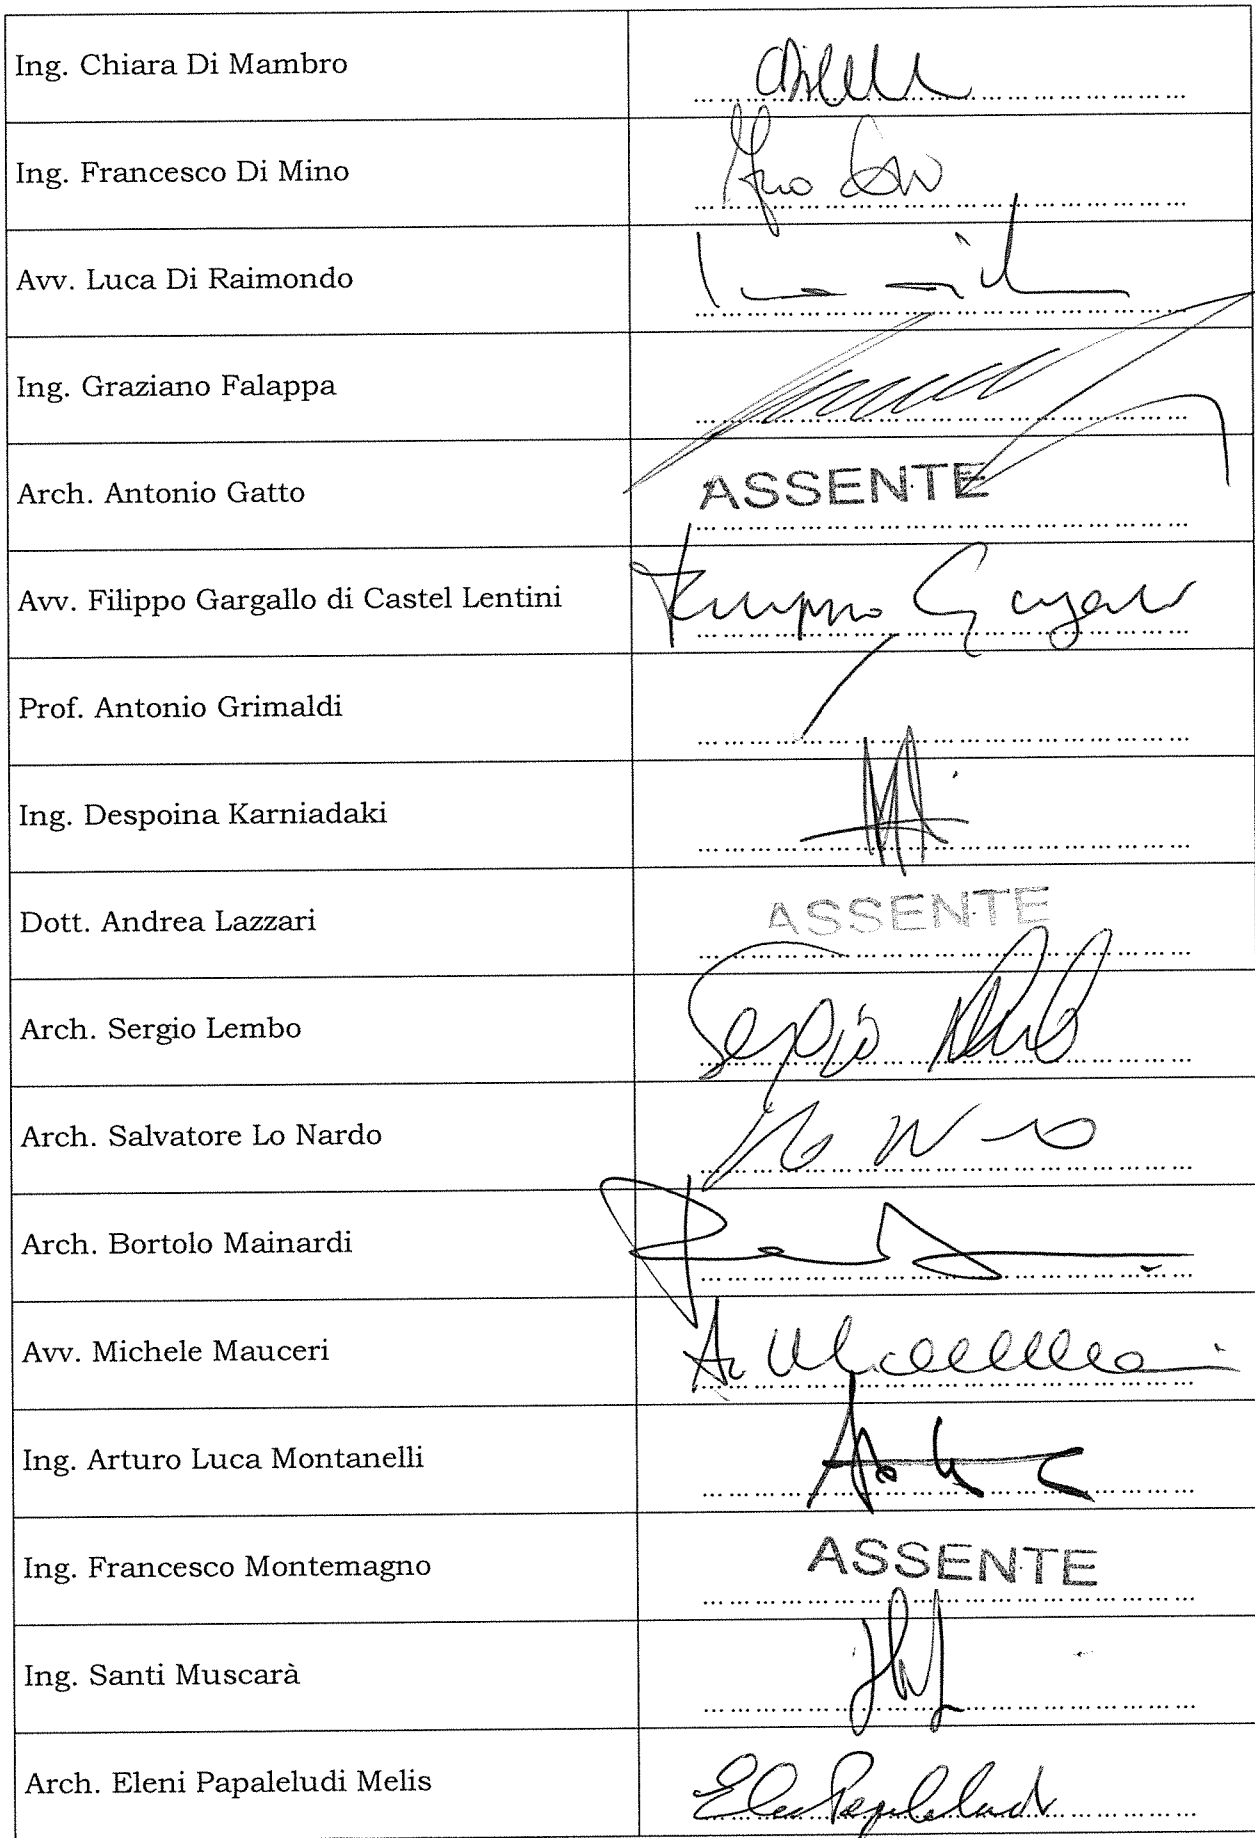 Ing. Chiara Di Mambro
Ing. Francesco Di Mino
Avv. Luca Di Raimondo
Ing. Graziano Falappa
Arch. Antonio Gatto
ASSENTE
Avv. Filippo Gargallo di Castel Lentini
Filippo Gargallo
Prof. Antonio Grimaldi
Ing. Despoina Karniadaki
Dott. Andrea Lazzari
ASSENTE
Arch. Sergio Lembo
Sergio
Arch. Salvatore Lo Nardo
Arch. Bortolo Mainardi
Avv. Michele Mauceri
Ing. Arturo Luca Montanelli
Ing. Francesco Montemagno
ASSENTE
Ing. Santi Muscarà
Arch. Eleni Papaleludi Melis